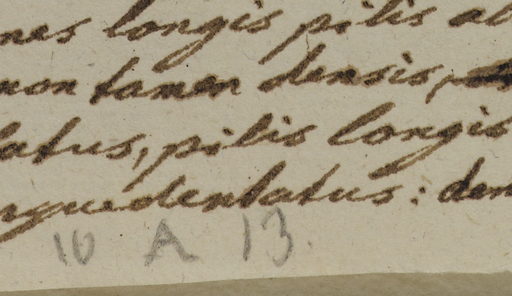 nes longis pilis al
non tamen densis,
latus, pilis longis
quedentatus: den
10 A 13.